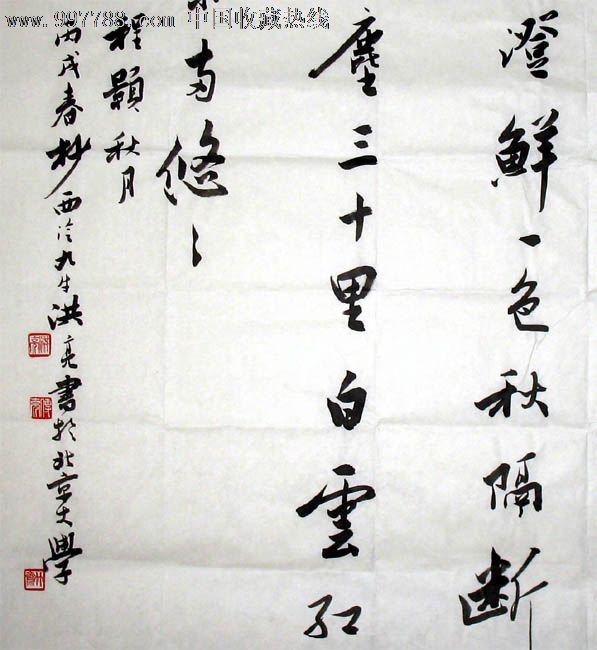 www.997788.com 中国收藏热线
澄鮮一色秋隔断
塵三十里白雲红
两悠〻
程顥秋月
丙戌春杪西泠九生洪亮書於北京大學